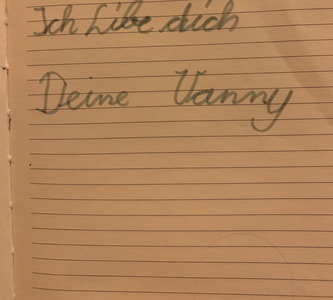 Ich Libe dich
Deine Vanny